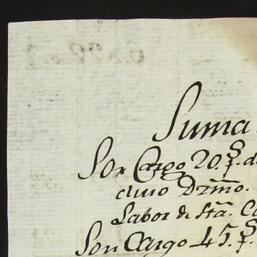 Suma
Son Cargo 20. p.s d
cluio Dzmo.
Labor de Sta. C
Son Cargo 45. p.s